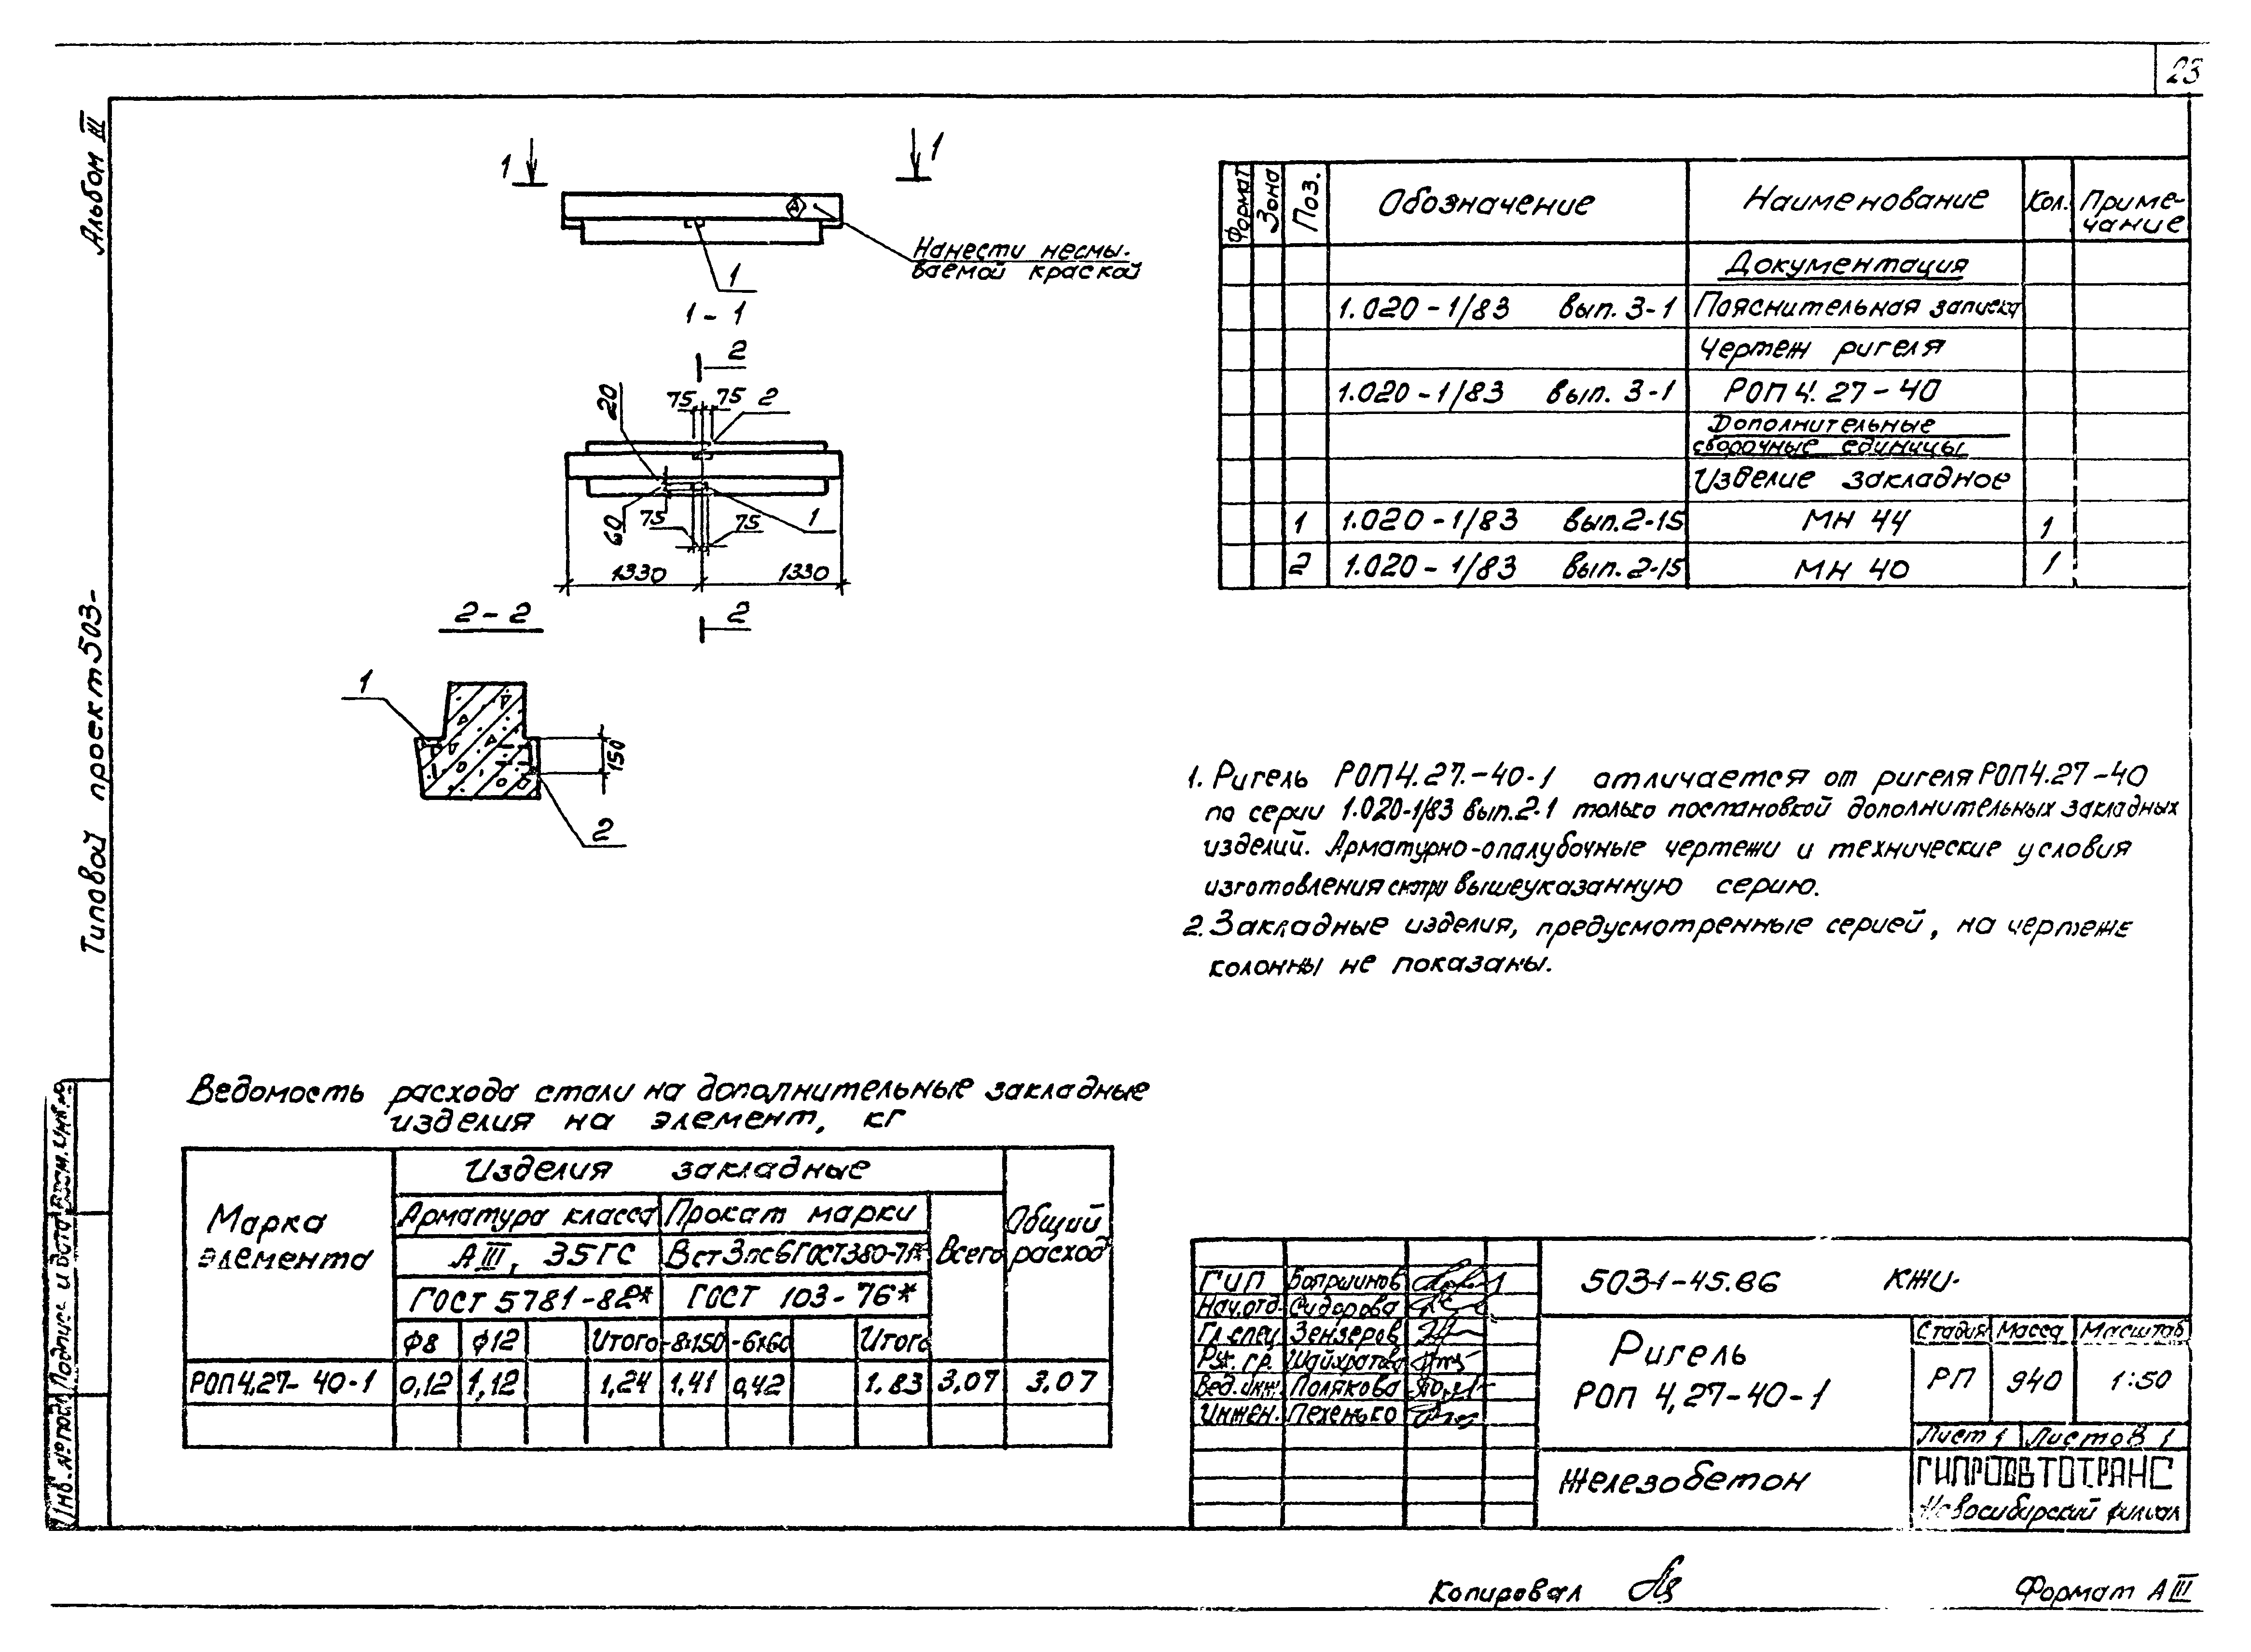 23
Альбом III
Типовой проект 503-
1
1
Нанести несмы-
ваемой краской
1
1-1
2
20
75
75
2
60
75
75
1
1330
1330
2
2-2
1
150
2
Формат
Зона
Поз.
Обозначение
Наименование
Кол.
Приме-
чание
Документация
1.020-1/83 вып. 3-1 Пояснительная записка
Чертеж ригеля
1.020-1/83 вып. 3-1 РОП 4.27-40
Дополнительные
сборочные единицы
Изделие закладное
1 1.020-1/83 вып. 2-15 МН 44 1
2 1.020-1/83 вып. 2-15 МН 40 1
1. Ригель РОП4.27.-40-1 отличается от ригеля РОП4.27-40
по серии 1.020-1/83 вып.2-1 только постановкой дополнительных закладных
изделий. Арматурно-опалубочные чертежи и технические условия
изготовления смотри вышеуказанную серию.
2. Закладные изделия, предусмотренные серией, на чертеже
колонны не показаны.
Ведомость расхода стали на дополнительные закладные
изделия на элемент, кг
Марка
элемента
Изделия закладные
Арматура класса
Прокат марки
Всего
Общий
расход
АIII, 35ГС
Вст3пс6 ГОСТ380-71*
ГОСТ 5781-82*
ГОСТ 103-76*
ф8 ф12 Итого -8х150 -6х60 Итого
РОП4,27-40-1 0,12 1,12 1,24 1,41 0,42 1.83 3,07 3,07
Взам. инв. №
Подпись и дата
Инв. № подл.
ГИП
Нач.отд. Сидорова
Гл. спец. Зензеров
Рук. гр.
Вед. инж. Полякова
Инжен. Пехенько
503-1-45.86 КЖИ-
Ригель
РОП 4,27-40-1
Стадия Масса Масштаб
РП 940 1:50
Лист 1 Листов 1
Железобетон
ГИПРОАВТОТРАНС
Новосибирский филиал
Копировал
Формат АIII